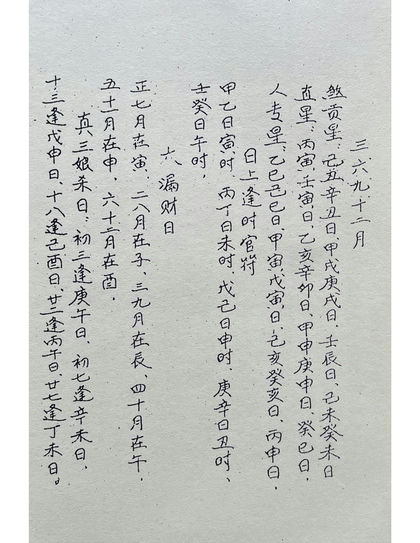 三六九十二月
煞贡星:己丑辛丑日甲戌庚戌日、壬辰日、己未癸未日
直星:丙寅、壬寅日、乙亥辛卯日、甲申庚申日、癸巳日、
人专星、乙巳己巳日、甲寅、戊寅、日、己亥癸亥日、丙申日、
日上逢时官符
甲乙日寅时、丙丁日未时、戊己日申时、庚辛日丑时、
壬癸日午时、
六漏财日
正七月在寅、二八月在子、三九月在辰、四十月在午、
五十一月在申、六十二月在酉、
真三娘杀日:初三逢庚午日、初七逢辛未日、
十三逢戊申日、十八逢己酉日、廿二逢丙午日廿七逢丁未日。